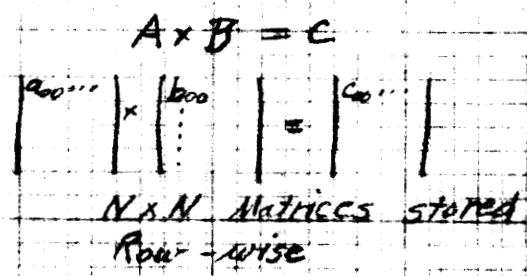 A × B = C
|a₀₀...| × |b₀₀ ⋮| = |c₀₀...|
N × N Matrices stored
Row-wise